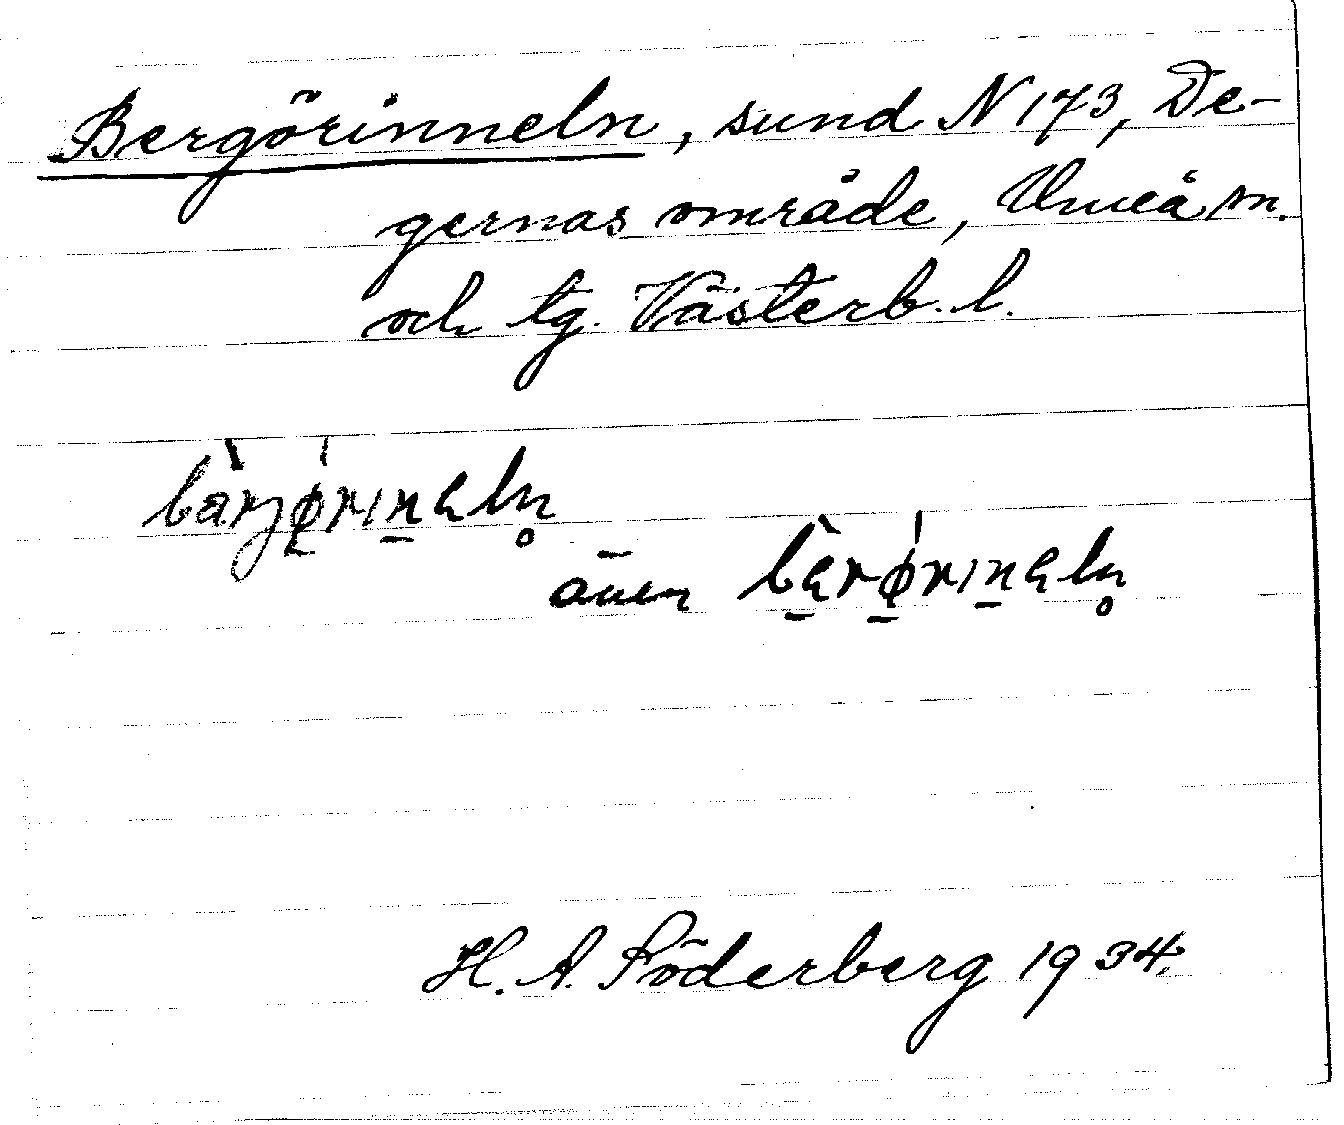 Bergörinneln, sund N 173, De-
gernas område, Umeå sn.
och tg. Västerb. l.
bàrjǿ̱riṉəln̥
även bə̱̀rǿ̱riṉəln̥
H. A. Söderberg 1934.